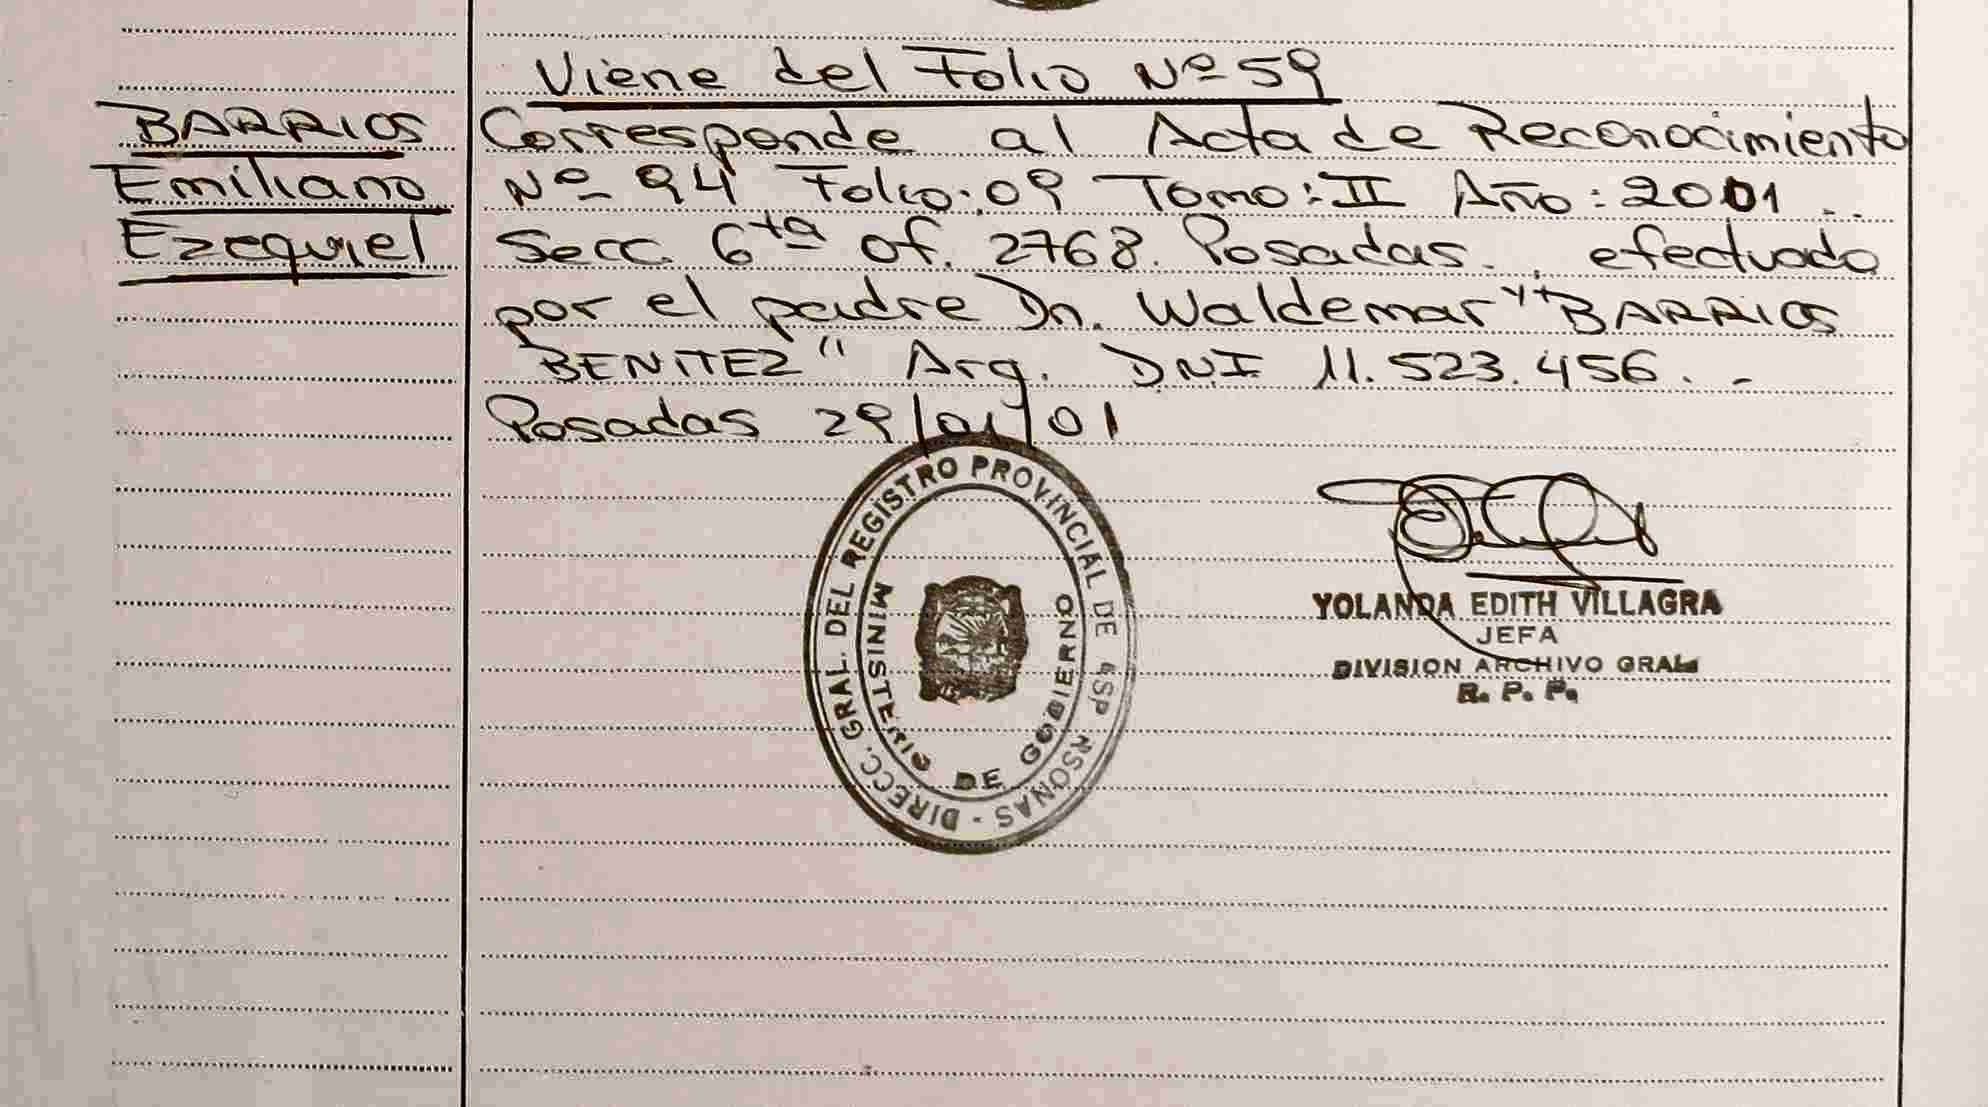 Viene del Folio Nº 59
BARRIOS
Emiliano
Ezequiel
Corresponde al Acta de Reconocimiento
Nº 94 Folio: 09 Tomo: II Año: 2001 ..
Secc. 6ta of. 2768. Posadas. , efectuado
por el padre Dn. Waldemar "BARRIOS
BENITEZ" Arg. DNI 11.523.456. -
Posadas 29/01/01
DIRECC. GRAL. DEL REGISTRO PROVINCIAL DE RSONAS -
MINISTERIO DE GOBIERNO
YOLANDA EDITH VILLAGRA
JEFA
DIVISION ARCHIVO GRAL
R. P. P.